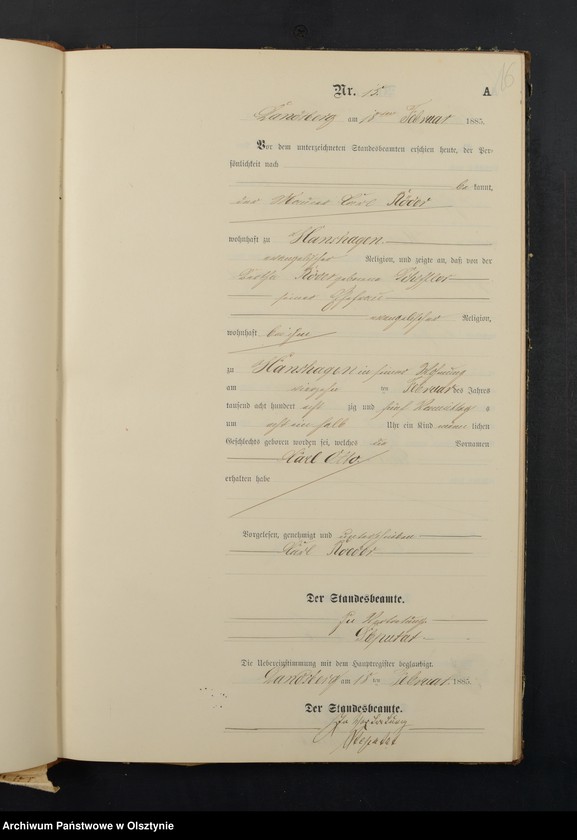 16
Nr. 15. A
Landsberg am 18ten Februar 1885.
Vor dem unterzeichneten Standesbeamten erschien heute, der Per-
sönlichkeit nach
be kannt,
der Maurer Carl Röder
wohnhaft zu Hanshagen
evangelischer Religion, und zeigte an, daß von der
Röder geborene
seiner Ehefrau
evangelischer Religion,
wohnhaft bei ihm
zu Hanshagen in seiner Wohnung
am ten Februar des Jahres
tausend acht hundert acht zig und fünf Vormittags
um acht ein halb Uhr ein Kind männ lichen
Geschlechts geboren worden sei, welches die Vornamen
Carl Otto
erhalten habe
Vorgelesen, genehmigt und unterschrieben
Carl Roeder
Der Standesbeamte.
In Vertretung
Deputat
Die Uebereinstimmung mit dem Hauptregister beglaubigt.
Landsberg am 18 ten Februar 1885.
Der Standesbeamte.
In Vertretung
Deputat
Archiwum Państwowe w Olsztynie